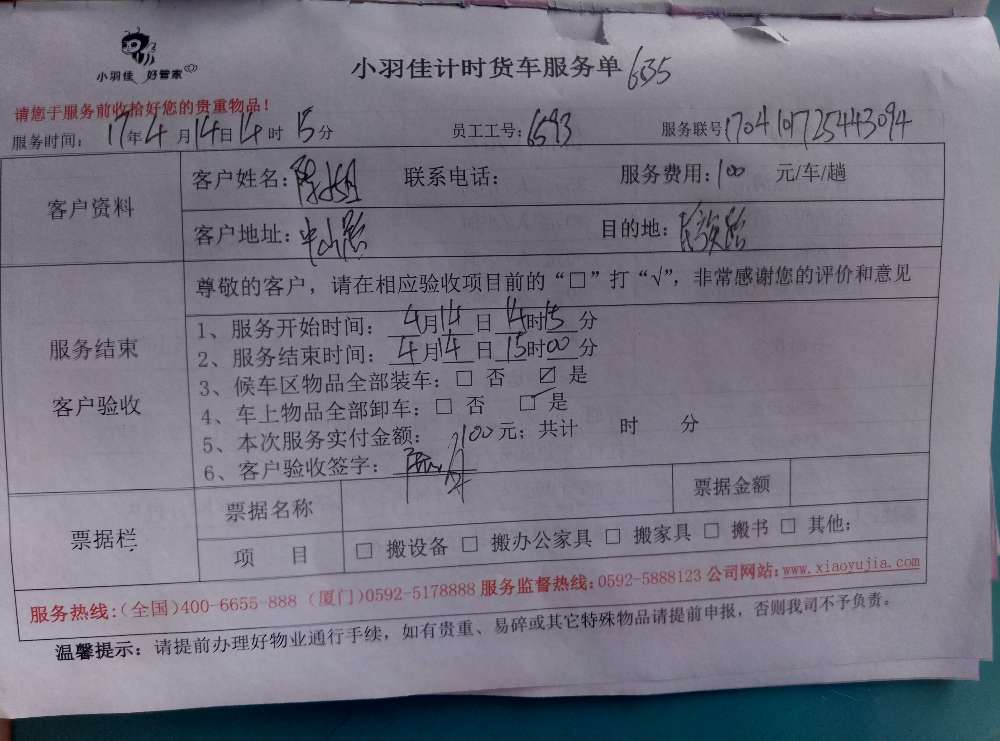 小羽佳 好管家
小羽佳计时货车服务单 6635
请您于服务前收拾好您的贵重物品！
服务时间： 17年4月14日14时15分 员工工号：6593 服务联号1704101725443094
客户资料
客户姓名：陈小姐 联系电话： 服务费用：100 元/车/趟
客户地址：中山路 目的地：
尊敬的客户，请在相应验收项目前的“□”打“√”，非常感谢您的评价和意见
服务结束
客户验收
1、服务开始时间： 4月14日 14时15分
2、服务结束时间： 4月14日 15时00分
3、候车区物品全部装车：□ 否 ☑ 是
4、车上物品全部卸车：□ 否 ☑ 是
5、本次服务实付金额： 100元；共计 时 分
6、客户验收签字：
票据栏
票据名称 票据金额
项 目 □ 搬设备 □ 搬办公家具 □ 搬家具 □ 搬书 □ 其他：
服务热线：（全国）400-6655-888（厦门）0592-5178888 服务监督热线：0592-5888123 公司网站：www.xiaoyujia.com
温馨提示：请提前办理好物业通行手续，如有贵重、易碎或其它特殊物品请提前申报，否则我司不予负责。